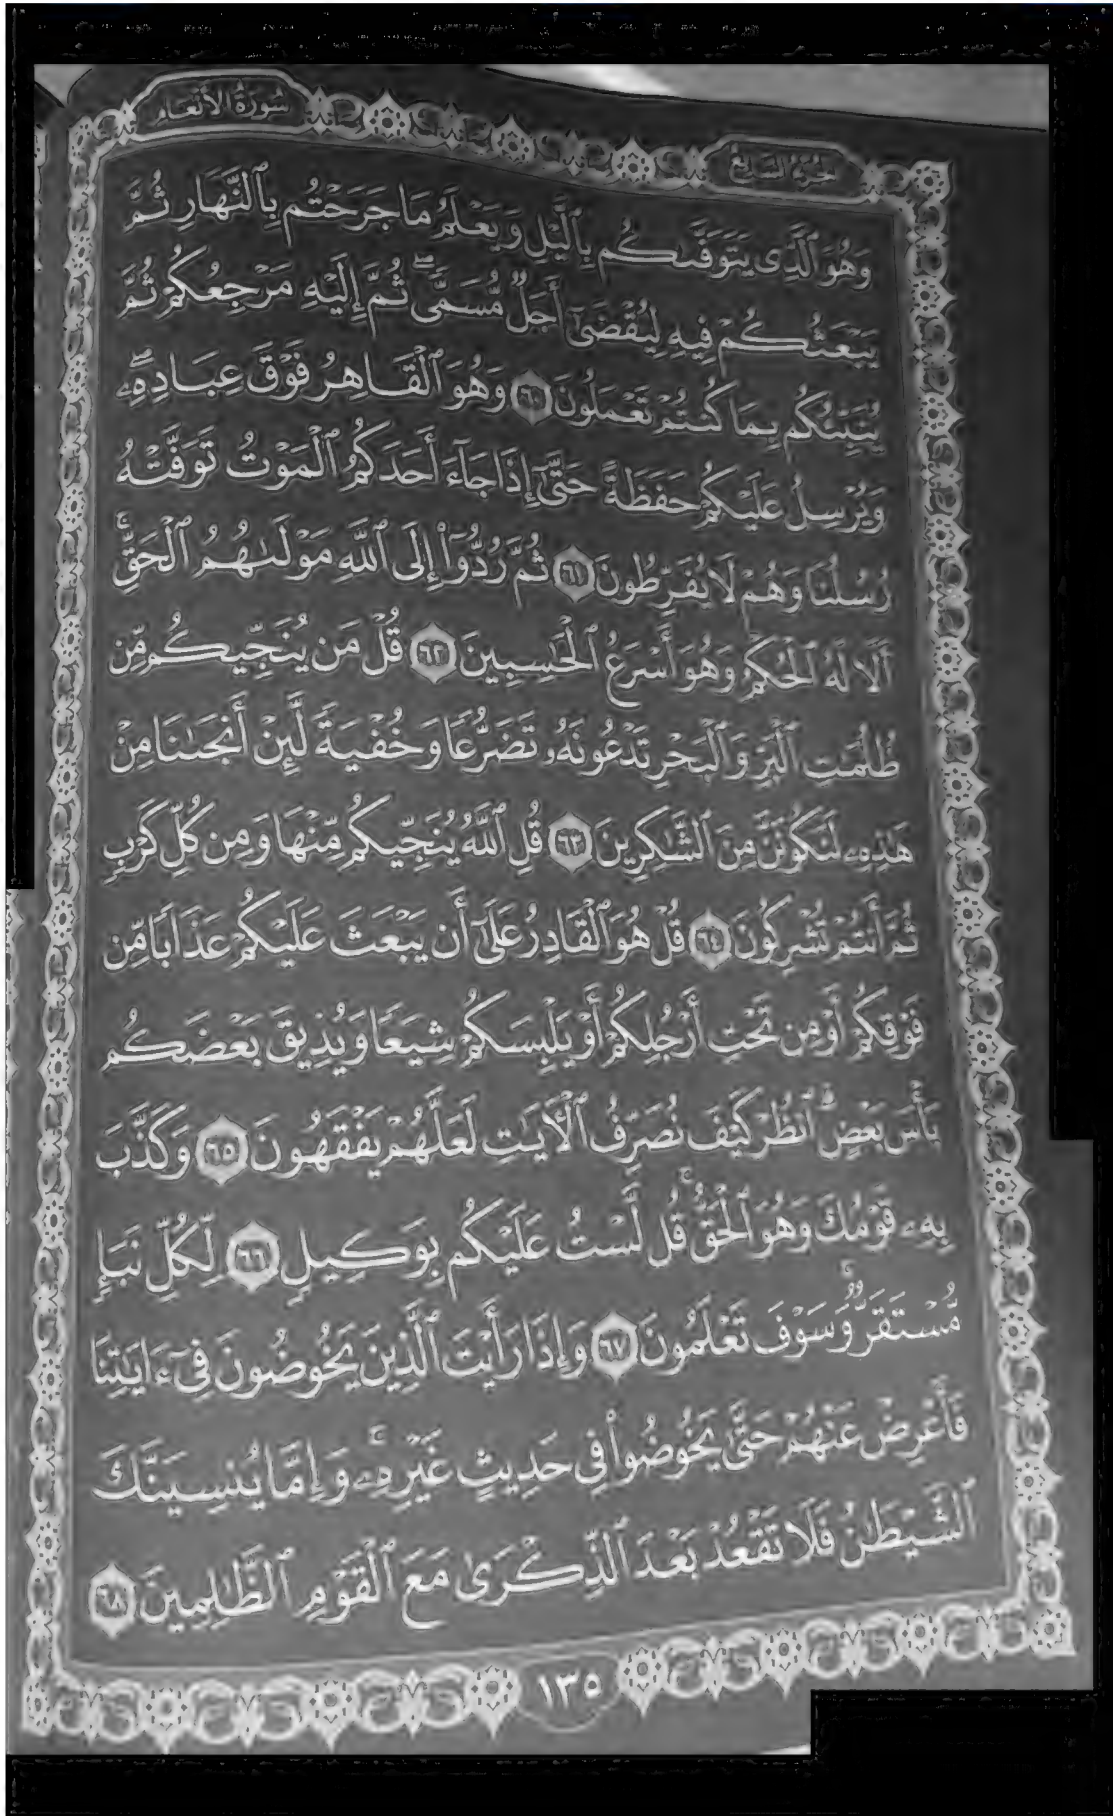 الجزء السابع
سورة الأنعام
وَهُوَ ٱلَّذِى يَتَوَفَّىٰكُم بِٱلَّيْلِ وَيَعْلَمُ مَا جَرَحْتُم بِٱلنَّهَارِ ثُمَّ
يَبْعَثُكُمْ فِيهِ لِيُقْضَىٰٓ أَجَلٌ مُّسَمًّى ۖ ثُمَّ إِلَيْهِ مَرْجِعُكُمْ ثُمَّ
يُنَبِّئُكُم بِمَا كُنتُمْ تَعْمَلُونَ ٦٠ وَهُوَ ٱلْقَاهِرُ فَوْقَ عِبَادِهِۦ ۖ
وَيُرْسِلُ عَلَيْكُمْ حَفَظَةً حَتَّىٰٓ إِذَا جَآءَ أَحَدَكُمُ ٱلْمَوْتُ تَوَفَّتْهُ
رُسُلُنَا وَهُمْ لَا يُفَرِّطُونَ ٦١ ثُمَّ رُدُّوٓا۟ إِلَى ٱللَّهِ مَوْلَىٰهُمُ ٱلْحَقِّ ۚ
أَلَا لَهُ ٱلْحُكْمُ وَهُوَ أَسْرَعُ ٱلْحَـٰسِبِينَ ٦٢ قُلْ مَن يُنَجِّيكُم مِّن
ظُلُمَـٰتِ ٱلْبَرِّ وَٱلْبَحْرِ تَدْعُونَهُۥ تَضَرُّعًا وَخُفْيَةً لَّئِنْ أَنجَىٰنَا مِنْ
هَـٰذِهِۦ لَنَكُونَنَّ مِنَ ٱلشَّـٰكِرِينَ ٦٣ قُلِ ٱللَّهُ يُنَجِّيكُم مِّنْهَا وَمِن كُلِّ كَرْبٍ
ثُمَّ أَنتُمْ تُشْرِكُونَ ٦٤ قُلْ هُوَ ٱلْقَادِرُ عَلَىٰٓ أَن يَبْعَثَ عَلَيْكُمْ عَذَابًا مِّن
فَوْقِكُمْ أَوْ مِن تَحْتِ أَرْجُلِكُمْ أَوْ يَلْبِسَكُمْ شِيَعًا وَيُذِيقَ بَعْضَكُم
بَأْسَ بَعْضٍ ۗ ٱنظُرْ كَيْفَ نُصَرِّفُ ٱلْـَٔايَـٰتِ لَعَلَّهُمْ يَفْقَهُونَ ٦٥ وَكَذَّبَ
بِهِۦ قَوْمُكَ وَهُوَ ٱلْحَقُّ ۚ قُل لَّسْتُ عَلَيْكُم بِوَكِيلٍ ٦٦ لِّكُلِّ نَبَإٍ
مُّسْتَقَرٌّ ۚ وَسَوْفَ تَعْلَمُونَ ٦٧ وَإِذَا رَأَيْتَ ٱلَّذِينَ يَخُوضُونَ فِىٓ ءَايَـٰتِنَا
فَأَعْرِضْ عَنْهُمْ حَتَّىٰ يَخُوضُوا۟ فِى حَدِيثٍ غَيْرِهِۦ ۚ وَإِمَّا يُنسِيَنَّكَ
ٱلشَّيْطَـٰنُ فَلَا تَقْعُدْ بَعْدَ ٱلذِّكْرَىٰ مَعَ ٱلْقَوْمِ ٱلظَّـٰلِمِينَ ٦٨
١٣٥